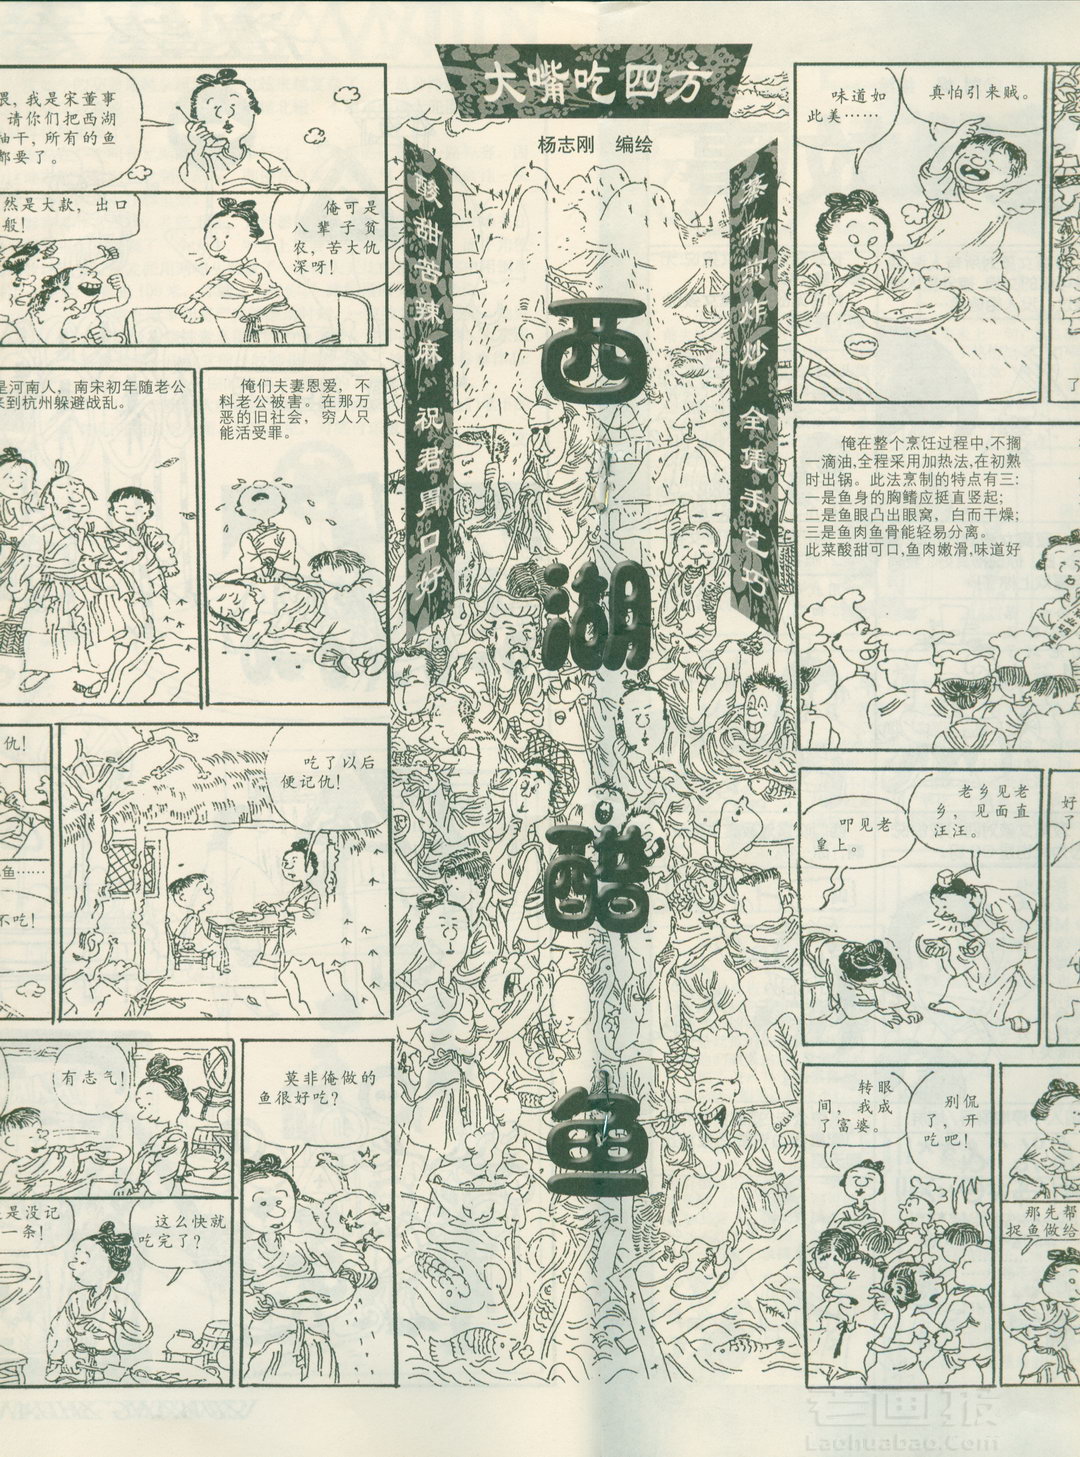 大嘴吃四方
杨志刚　编绘
酸甜苦辣麻 祝君胃口好
蒸煮煎炸炒 全凭手艺巧
西湖醋鱼
喂，我是宋董事
请你们把西湖
抽干，所有的鱼
都要了。
然是大款，出口
般！
俺可是
八辈子贫
农，苦大仇
深呀！
是河南人，南宋初年随老公
来到杭州躲避战乱。
俺们夫妻恩爱，不
料老公被害。在那万
恶的旧社会，穷人只
能活受罪。
仇！
鱼……
不吃！
吃了以后
便记仇！
有志气！
是没记
一条！
这么快就
吃完了？
莫非俺做的
鱼很好吃？
味道如
此美……
真怕引来贼。
了
俺在整个烹饪过程中，不搁
一滴油，全程采用加热法，在初熟
时出锅。此法烹制的特点有三：
一是鱼身的胸鳍应挺直竖起；
二是鱼眼凸出眼窝，白而干燥；
三是鱼肉鱼骨能轻易分离。
此菜酸甜可口，鱼肉嫩滑，味道好
叩见老
皇上。
老乡见老
乡，见面直
汪汪。
好
了
转眼
间，我成
了富婆。
别侃
了，开
吃吧！
那先帮
捉鱼做给
老画报
Laohuabao.Com